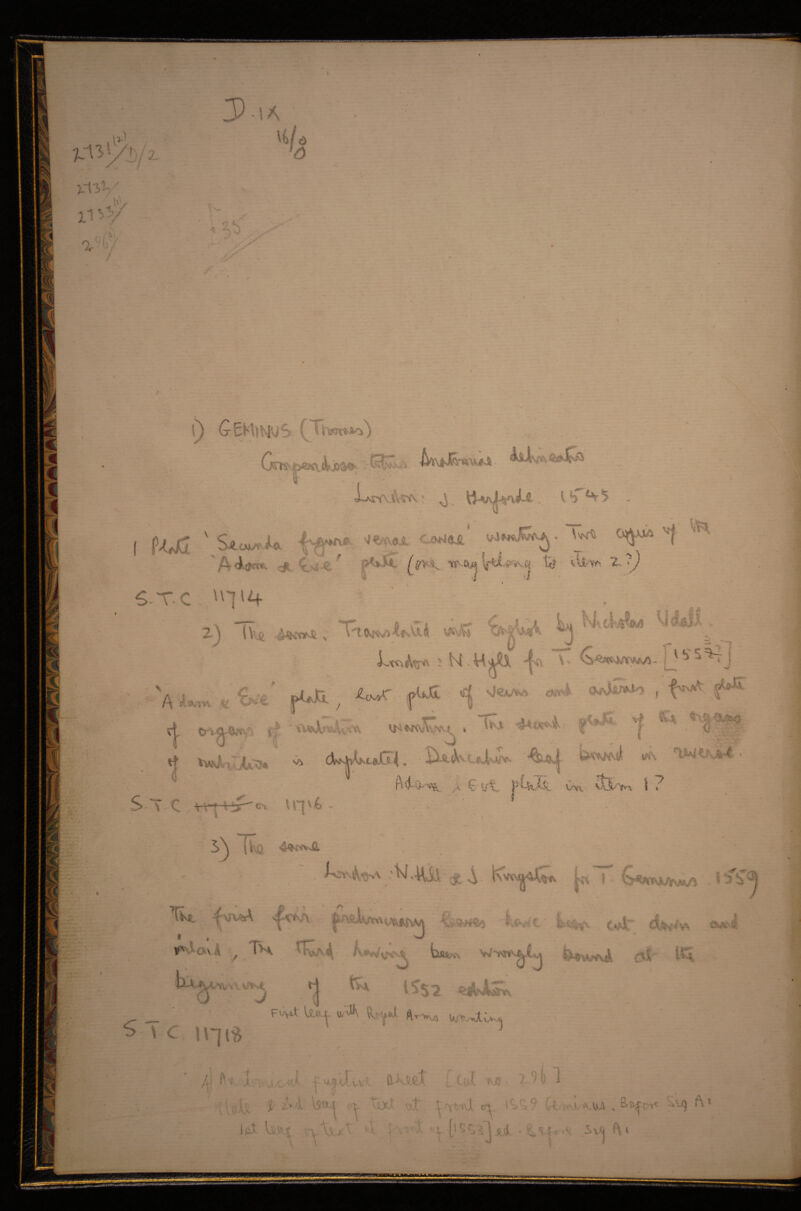 D.ix
16/0
2131(2)/D/2
2132/
2133(1)/
296(2)/
£35
1) GEMINUS (Thomas)
Compendiosa totius Anatomiae delineatio
London: J. Herforde. 1545.
1 Plate 'Secunda figura venae cavae' wanting. Two copies of the
'Adam & Eve' plate (one may belong to item 2?)
S.T.C 11714
2) The same, Translated into English by Nicholas Udall.
London: N. Hyll for T. Geminus. [1552]
'Adam & Eve' plate, last plate of veins and arteries, first plate
of organs of nutrition wanting. The second plate of the organs
of nutrition is duplicated. Dedication leaf bound in reverse.
Adam & Eve plate in item 1?
S.T.C 11715 or 11716.
3) The same
London: N. Hill & J. Kingston for T. Geminus 1559
The first four preliminary leaves have been cut down and
inlaid, The third having been wrongly bound at the
beginning of the 1552 edition
First leaf with Royal Arms wanting
S T C 11718
4) Anatomical fugitive sheet [Cat no. 296]
Plate & 2nd leaf of text at front of 1559 Geminus. Before Sig A1
1st leaf of text at front of [1553] ed. Before Sig A1